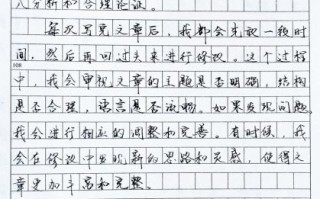 分析和合理论证。
每次写完文章后，我都会先放一段时
间，然后再回过头来进行修改。这个过程
100
中，我会审视文章的主题是否明确，结构
是否合理，语言是否流畅。如果发现问题，
我会进行相应的调整和完善。有时候，我
会在修改中发现新的思路和灵感，使得文
章更加丰富和完整。